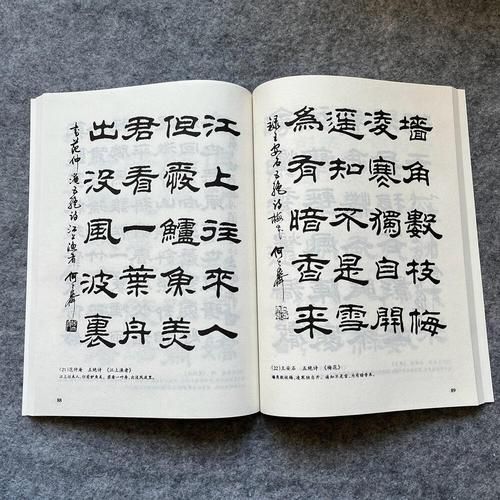 江上往來人
但愛鱸魚美
君看一葉舟
出沒風波裏
書范仲淹五絕詩江上漁者 何
(21)范仲淹 五绝诗 《江上渔者》
江上往来人，但爱鲈鱼美。君看一叶舟，出没风波里。
88
墙角數枝梅
凌寒獨自開
遥知不是雪
為有暗香来
録王安石五绝诗梅花 何
(22)王安石 五绝诗 《梅花》
墙角数枝梅，凌寒独自开。遥知不是雪，为有暗香来。
89